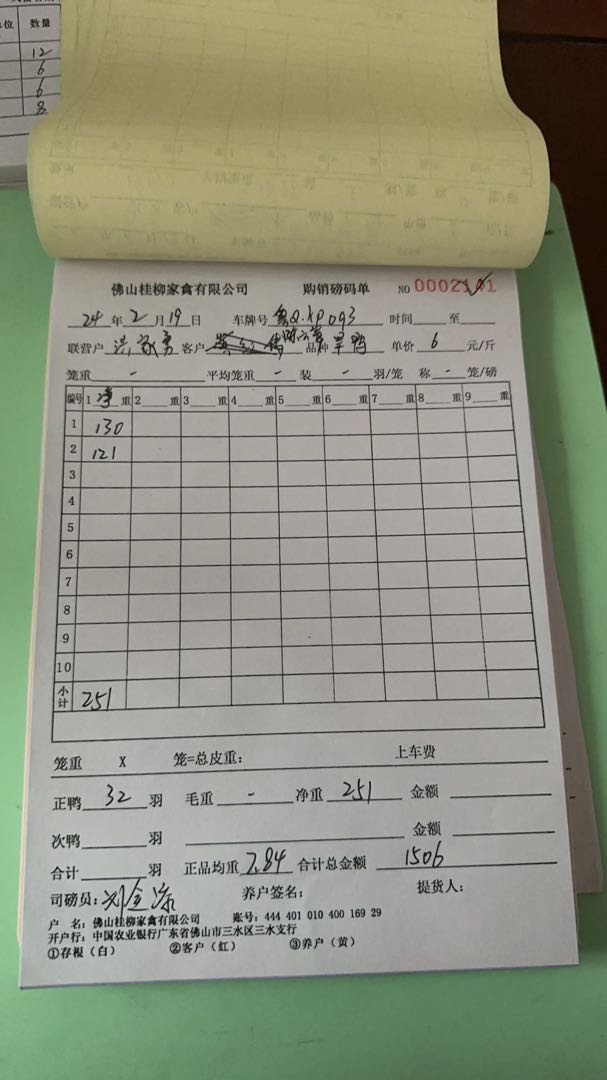 数量
12
6
6
8
佛山桂柳家禽有限公司 购销磅码单 NO 0002141
24年2月19日 车牌号 粤Q.XP093 时间 至
联营户 客户 品种 旱鸭 单价 6 元/斤
笼重 - 平均笼重 - 装 - 羽/笼 称 - 笼/磅
编号 1 净 重 2 重 3 重 4 重 5 重 6 重 7 重 8 重 9 重
1 130
2 121
3
4
5
6
7
8
9
10
小计 251
笼重 X 笼=总皮重: 上车费
正鸭 32 羽 毛重 - 净重 251 金额
次鸭 羽 金额
合计 羽 正品均重 7.84 合计总金额 1506
司磅员: 养户签名: 提货人:
户 名: 佛山桂柳家禽有限公司 账号: 444 401 010 400 169 29
开户行: 中国农业银行广东省佛山市三水区三水支行
①存根（白） ②客户（红） ③养户（黄）